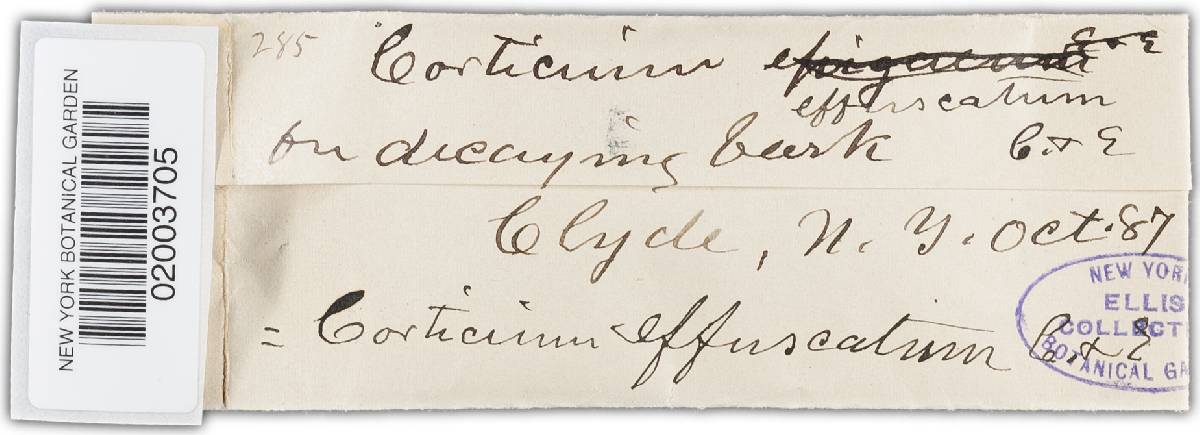 NEW YORK BOTANICAL GARDEN
02003705
285
Corticium epigaeum E & E
effuscatum
on decaying bark C. & E
Clyde, N. Y. Oct. 87
= Corticium effuscatum C. & E
NEW YOR
ELLIS
COLLECT
BOTANICAL GA